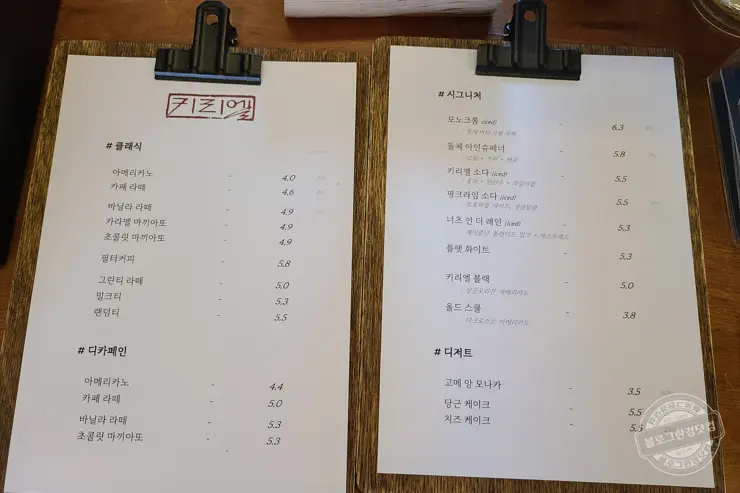 키리엘
# 클래식
아메리카노 - 4.0
카페 라떼 - 4.6
바닐라 라떼 - 4.9
카라멜 마끼아또 - 4.9
초콜릿 마끼아또 - 4.9
필터커피 - 5.8
그린티 라떼 - 5.0
밀크티 - 5.3
랜덤티 - 5.5
# 디카페인
아메리카노 - 4.4
카페 라떼 - 5.0
바닐라 라떼 - 5.3
초콜릿 마끼아또 - 5.3
# 시그니처
모노크롬 (iced) - 6.3
돌체 아인슈페너 - 5.8
키리엘 소다 (iced) - 5.5
핑크라임 소다 (iced) - 5.5
너츠 인 더 레인 (iced) - 5.3
플랫 화이트 - 5.3
키리엘 블랙 - 5.0
: 싱글오리진 아메리카노
올드 스쿨 - 3.8
: 다크로스트 아메리카노
# 디저트
고메 앙 모나카 - 3.5
당근 케이크 - 5.5
치즈 케이크 - 5.5
블로그한경닷컴